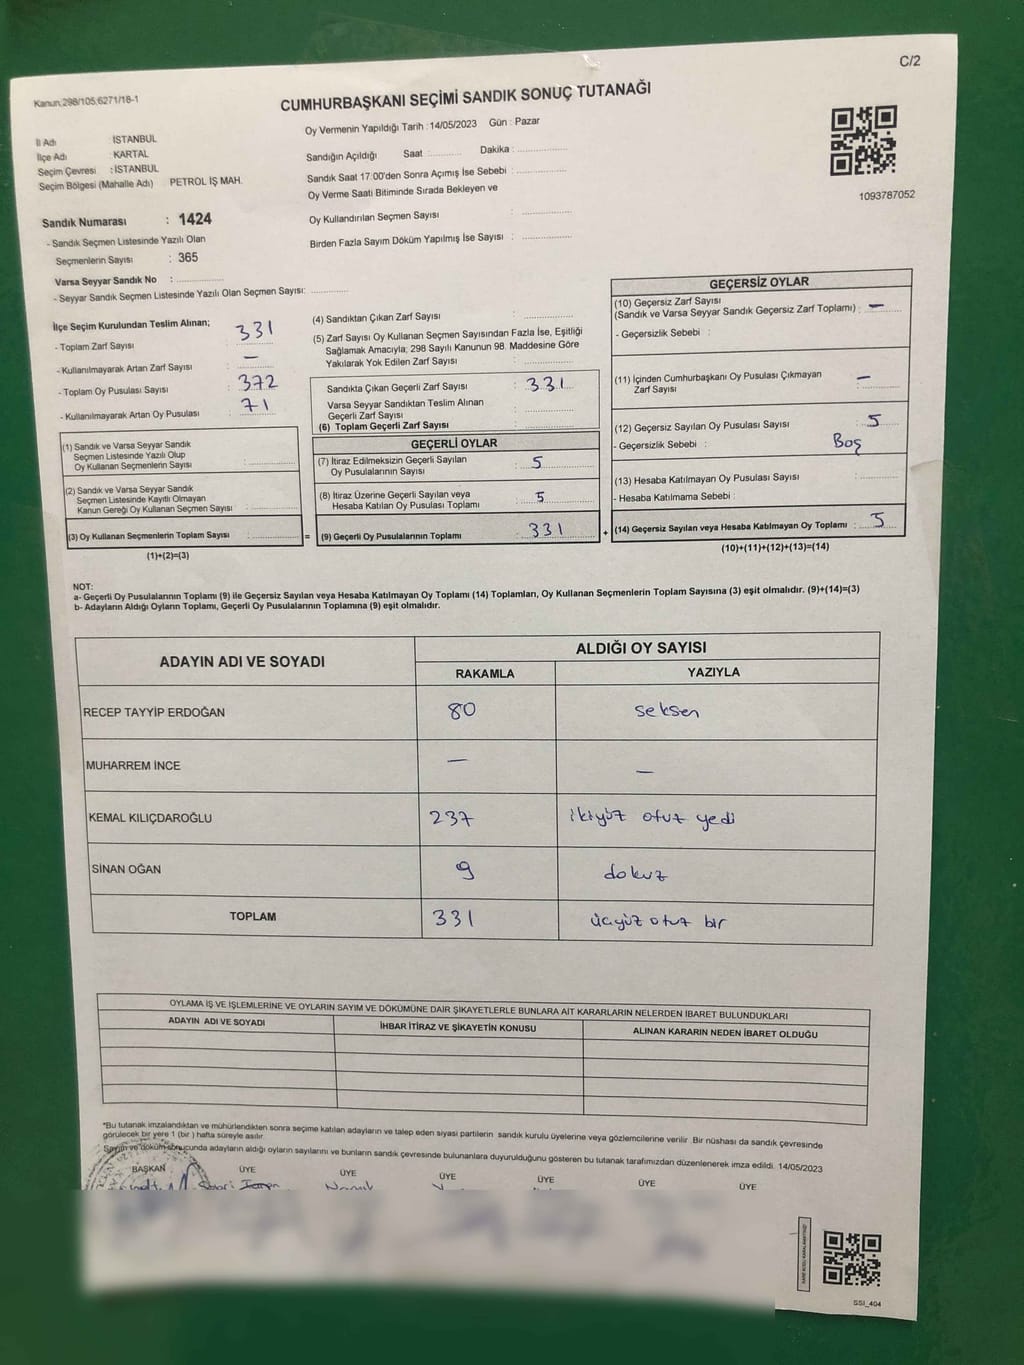 C/2
Kanun:298/105,6271/18-1
CUMHURBAŞKANI SEÇİMİ SANDIK SONUÇ TUTANAĞI
Oy Vermenin Yapıldığı Tarih :14/05/2023 Gün : Pazar
İl Adı : İSTANBUL
İlçe Adı : KARTAL
Seçim Çevresi : İSTANBUL
Seçim Bölgesi (Mahalle Adı) PETROL İŞ MAH.
Sandığın Açıldığı Saat :........... Dakika :................
Sandık Saat 17:00'den Sonra Açımış İse Sebebi :................
Oy Verme Saati Bitiminde Sırada Bekleyen ve
Oy Kullandırılan Seçmen Sayısı : ................
Birden Fazla Sayım Döküm Yapılmış İse Sayısı : ................
1093787052
Sandık Numarası : 1424
- Sandık Seçmen Listesinde Yazılı Olan
Seçmenlerin Sayısı : 365
Varsa Seyyar Sandık No : ................
- Seyyar Sandık Seçmen Listesinde Yazılı Olan Seçmen Sayısı: ............
İlçe Seçim Kurulundan Teslim Alınan;
- Toplam Zarf Sayısı : 331
- Kullanılmayarak Artan Zarf Sayısı : —
- Toplam Oy Pusulası Sayısı : 372
- Kullanılmayarak Artan Oy Pusulası : 71
(1) Sandık ve Varsa Seyyar Sandık
Seçmen Listesinde Yazılı Olup
Oy Kullanan Seçmenlerin Sayısı :
(2) Sandık ve Varsa Seyyar Sandık
Seçmen Listesinde Kayıtlı Olmayan
Kanun Gereği Oy Kullanan Seçmen Sayısı :
(3) Oy Kullanan Seçmenlerin Toplam Sayısı : =
(1)+(2)=(3)
(4) Sandıktan Çıkan Zarf Sayısı :
(5) Zarf Sayısı Oy Kullanan Seçmen Sayısından Fazla İse, Eşitliği
Sağlamak Amacıyla; 298 Sayılı Kanunun 98. Maddesine Göre
Yakılarak Yok Edilen Zarf Sayısı :
Sandıkta Çıkan Geçerli Zarf Sayısı : 331
Varsa Seyyar Sandıktan Teslim Alınan
Geçerli Zarf Sayısı :
(6) Toplam Geçerli Zarf Sayısı :
GEÇERLİ OYLAR
(7) İtiraz Edilmeksizin Geçerli Sayılan
Oy Pusulalarının Sayısı : 5
(8) İtiraz Üzerine Geçerli Sayılan veya
Hesaba Katılan Oy Pusulası Toplamı : 5
(9) Geçerli Oy Pusulalarının Toplamı : 331 +
GEÇERSİZ OYLAR
(10) Geçersiz Zarf Sayısı
(Sandık ve Varsa Seyyar Sandık Geçersiz Zarf Toplamı) : —
- Geçersizlik Sebebi :
(11) İçinden Cumhurbaşkanı Oy Pusulası Çıkmayan
Zarf Sayısı : —
(12) Geçersiz Sayılan Oy Pusulası Sayısı : 5
- Geçersizlik Sebebi : Boş
(13) Hesaba Katılmayan Oy Pusulası Sayısı :
- Hesaba Katılmama Sebebi :
(14) Geçersiz Sayılan veya Hesaba Katılmayan Oy Toplamı : 5
(10)+(11)+(12)+(13)=(14)
NOT:
a- Geçerli Oy Pusulalarının Toplamı (9) ile Geçersiz Sayılan veya Hesaba Katılmayan Oy Toplamı (14) Toplamları, Oy Kullanan Seçmenlerin Toplam Sayısına (3) eşit olmalıdır. (9)+(14)=(3)
b- Adayların Aldığı Oyların Toplamı, Geçerli Oy Pusulalarının Toplamına (9) eşit olmalıdır.
ADAYIN ADI VE SOYADI ALDIĞI OY SAYISI
RAKAMLA YAZIYLA
RECEP TAYYİP ERDOĞAN 80 seksen
MUHARREM İNCE — —
KEMAL KILIÇDAROĞLU 237 ikiyüz otuz yedi
SİNAN OĞAN 9 dokuz
TOPLAM 331 üçyüz otuz bir
OYLAMA İŞ VE İŞLEMLERİNE VE OYLARIN SAYIM VE DÖKÜMÜNE DAİR ŞİKAYETLERLE BUNLARA AİT KARARLARIN NELERDEN İBARET BULUNDUKLARI
ADAYIN ADI VE SOYADI İHBAR İTİRAZ VE ŞİKAYETİN KONUSU ALINAN KARARIN NEDEN İBARET OLDUĞU
*Bu tutanak imzalandıktan ve mühürlendikten sonra seçime katılan adayların ve talep eden siyasi partilerin sandık kurulu üyelerine veya gözlemcilerine verilir. Bir nüshası da sandık çevresinde
görülecek bir yere 1 (bir ) hafta süreyle asılır.
Sayım ve döküm sonucunda adayların aldığı oyların sayılarını ve bunların sandık çevresinde bulunanlara duyurulduğunu gösteren bu tutanak tarafımızdan düzenlenerek imza edildi. 14/05/2023
BAŞKAN ÜYE ÜYE ÜYE ÜYE ÜYE ÜYE
SSI_404